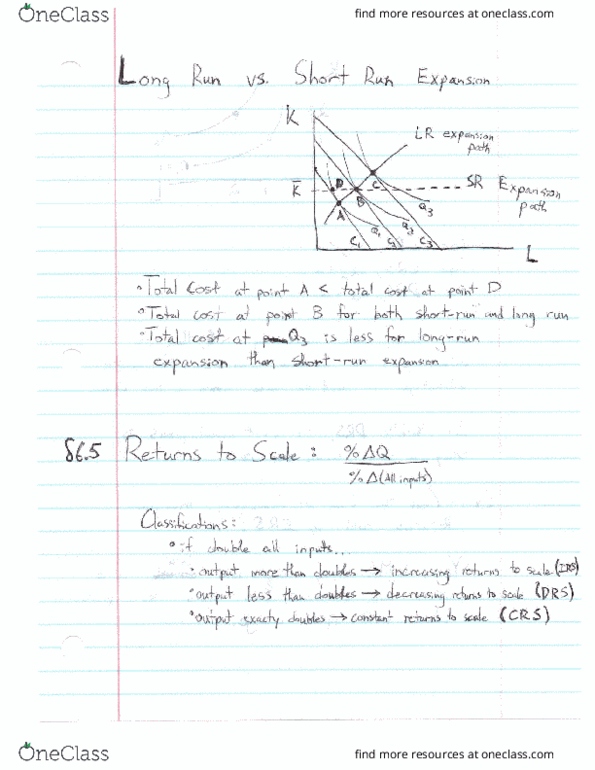 OneClass
find more resources at oneclass.com
Long Run vs. Short Run Expansion
K
LR expansion
path
K̅
D
C
SR Expansion
path
B
A
Q3
Q1
Q2
C1
C2
C3
L
• Total Cost at point A < total cost at point D
• Total cost at point B for both short-run and long run
• Total cost at Q3 is less for long-run
expansion than short-run expansion
§6.5 Returns to Scale: %ΔQ
%Δ(All inputs)
Classifications:
• if double all inputs...
• output more than doubles → increasing returns to scale (IRS)
• output less than doubles → decreasing returns to scale (DRS)
• output exacty doubles → constant returns to scale (CRS)
OneClass
find more resources at oneclass.com